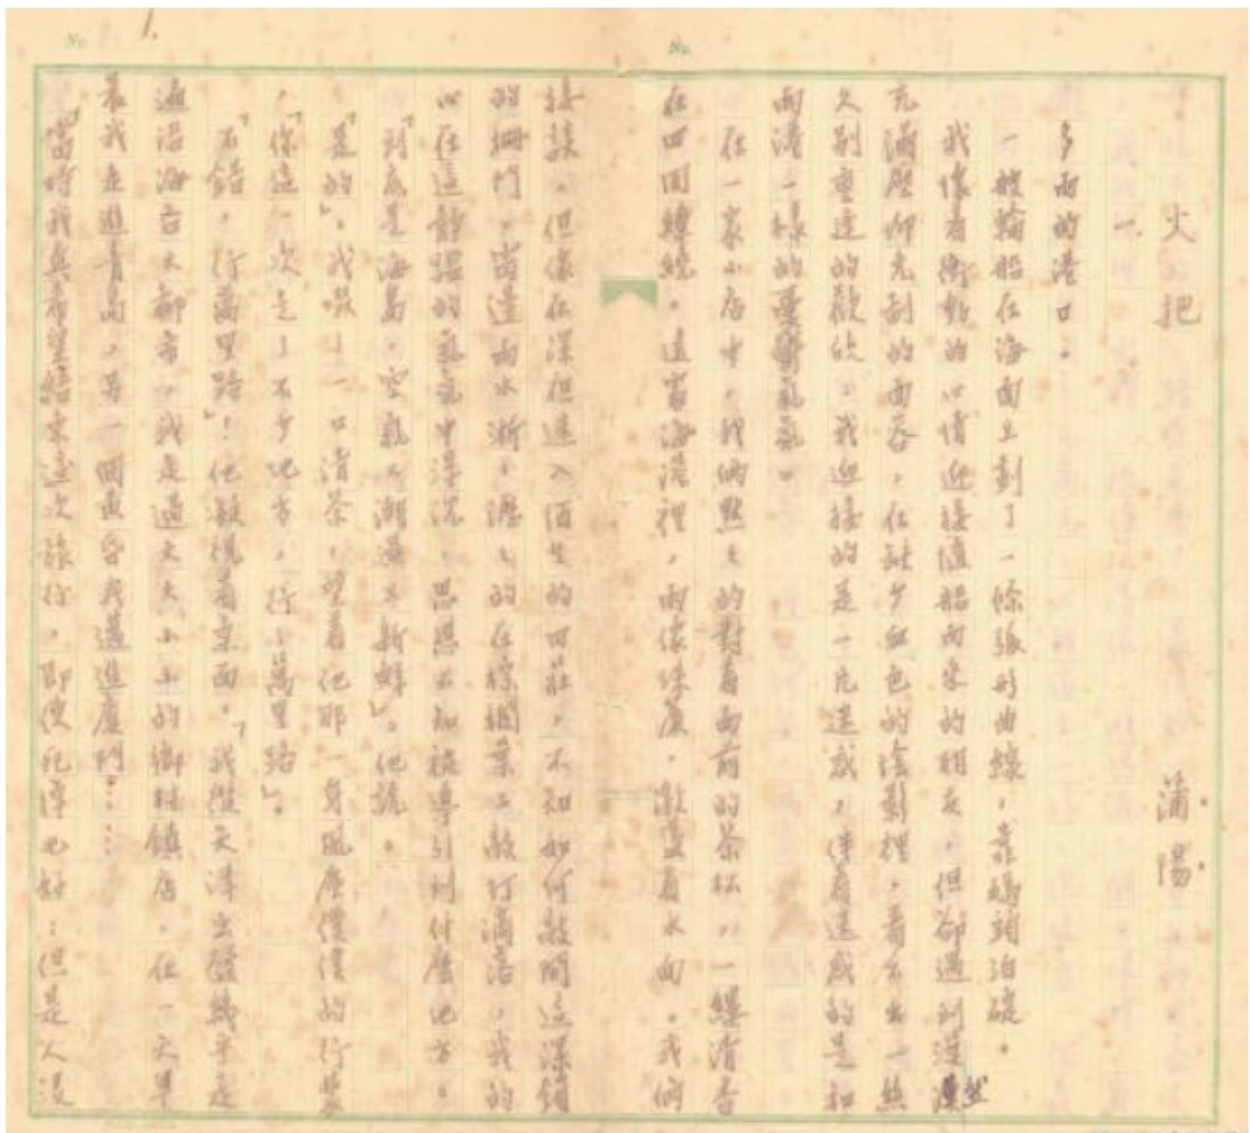 火把 蒲陽
一.
多雨的港口。
一艘輪船在海面上劃了一條弧形曲線,靠碼頭泊碇。
我懷着衝動的心情迎接這船而來的朋友,但卻遇到漠然
充滿壓抑克制的面容,在缺少血色的陰影裡,看不出一絲
久別重逢的歡欣,我迎接的是一片遺感,伴着遺感的是和
雨港一樣的憂鬱氣氛。
在一家小店中,我倆默々的對着面前的茶杯,一縷清香
在四周繚繞。這家海港裡,雨像珠簾,激盪着水面。我倆
接談,但像在深夜進入陌生的田莊,不知如何敲開這深鎖
的柵門,當這雨水淅々瀝々的在綠櫚葉上敲打滴落,我的
心在這靜謐的氣氛中浮沉,思想不知被導引到什麼地方。
「到底是海島,空氣又潮濕又新鮮」。他說。
「是的」,我啜了一口清茶,望着他那一身風塵僕僕的行裝
,「你這一次走了不少地方,行了萬里路」。
「不錯,行萬里路」!他凝視着桌面,「我從天津出發幾乎走
遍沿海各大都市,我是過大大小小的鄉村鎮店,在一天早
晨我走進青島,另一個黃昏我邁進廈門……
「當時我真希望結束這次旅行,即使死掉也好;但是人沒